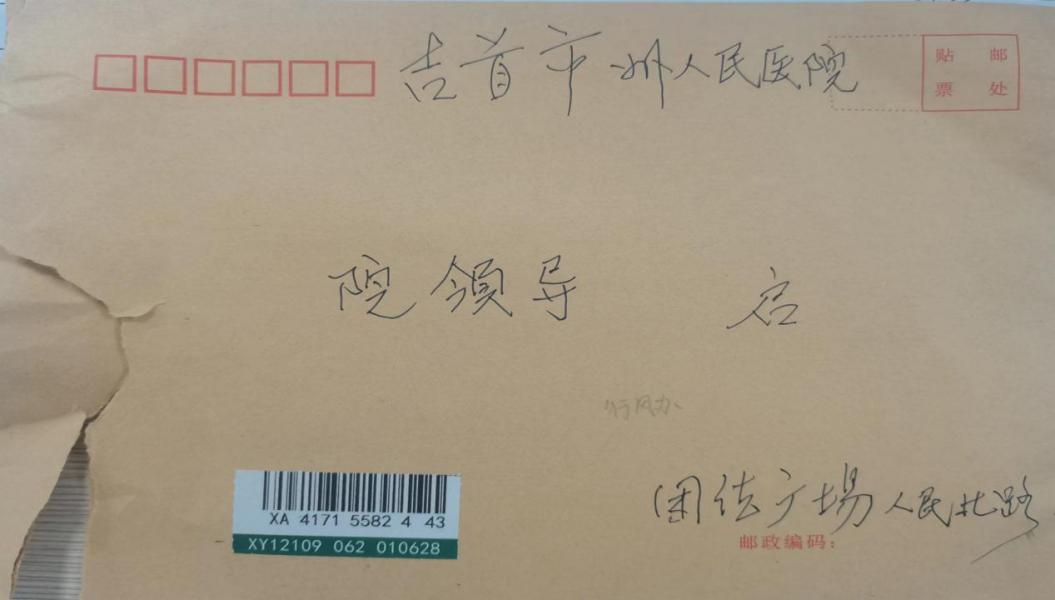 吉首市州人民医院
贴 邮
票 处
院领导 启
行风办
XA 4171 5582 4 43
XY12109 062 010628
团结广場人民北路
邮政编码：